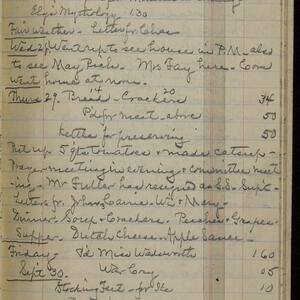 Ely's Mythology 1.30
Fair weather. Letter fr Chae
Wed 28 Went up to see house in P.M. also
to see May Rich. Mrs Fay here - Corn
went home at noon.
Thurs 29. Bread 14 - Crackers 20 34
Pd for meat above 50
Kettle for preserving 50
Put up 5 qts tomatoes & made catsup -
Prayer meeting in evening & committee meet
ing - Mr Fuller has resigned as S.S. Supt.
Letters fr. John, Loarne, Wi & Mary -
Dinner - Soup & Crackers. Peaches & Grapes
Supper - Dutch Cheese & Apple Sauce -
Friday - Pd Miss Walsworth 1 60
Sept 30. War Cry 05
Stocking Feet - for 10